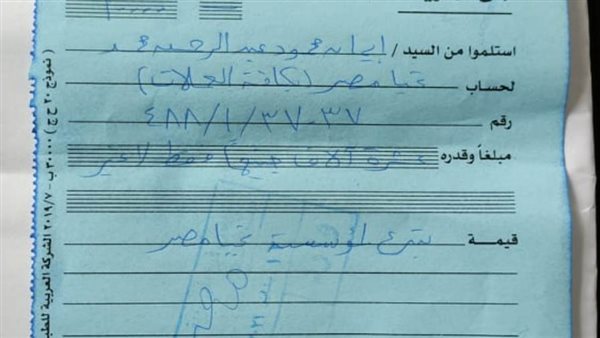 استلموا من السيد / إيمان محمود عبد الرحمن محمد
لحساب تحيا مصر (بكافة العملات)
رقم ٣٧-٣٧/١/٤٨٨
مبلغاً وقدره عشرة آلاف جنيهاً فقط لا غير
قيمة تبرع لمؤسسة تحيا مصر
( نموذج ٢٠ ح ج ) ٣٠٠٠٠ ب - ٢٠١٩/٧ الشركة العربية للطب